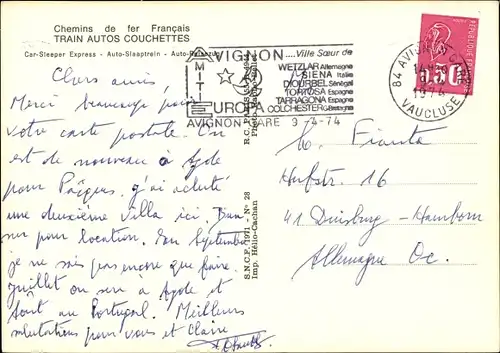 Chemins de fer Français
TRAIN AUTOS COUCHETTES
Car-Sleeper Express - Auto-Slaaptrein - Auto-Reisezug
AVIGNON
....Ville Sœur de
AMITIE
WETZLAR Allemagne
SIENA Italie
DIOURBEL Sénégal
TORTOSA Espagne
TARRAGONA Espagne
COLCHESTER Gde Bretagne
EUROPA
AVIGNON GARE 3-4-74
84 AVIGNON GARE
VAUCLUSE
0,50
Chers amis,
Merci beaucoup pour
votre carte postale. On
est de nouveau à Agde
pour Pâques. J'ai acheté
une deuxième villa ici.
sur pour location. En Septembre
je ne sais pas encore que faire.
Juillet on sera à Agde et
Août au Portugal. Meilleurs
salutations pour vous et Claire
S.N.C.F. 1971 N° 28
Imp. Hélio-Cachan
R.C. PARIS
Photo
Hufstr. 16
41 Duisburg-Hamborn
Allemagne Oc.